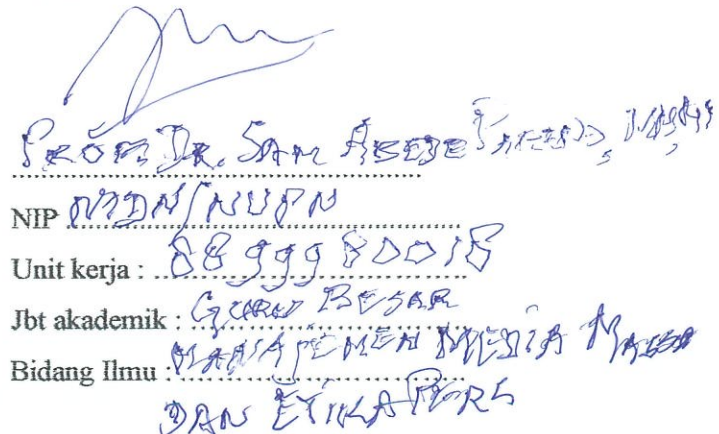 Prof. Dr. Sam Abede
NIP NIDN/NUPN
Unit kerja : 8899980018
Jbt akademik : Guru Besar
Bidang Ilmu : Manajemen Media Massa
dan Etika Pers